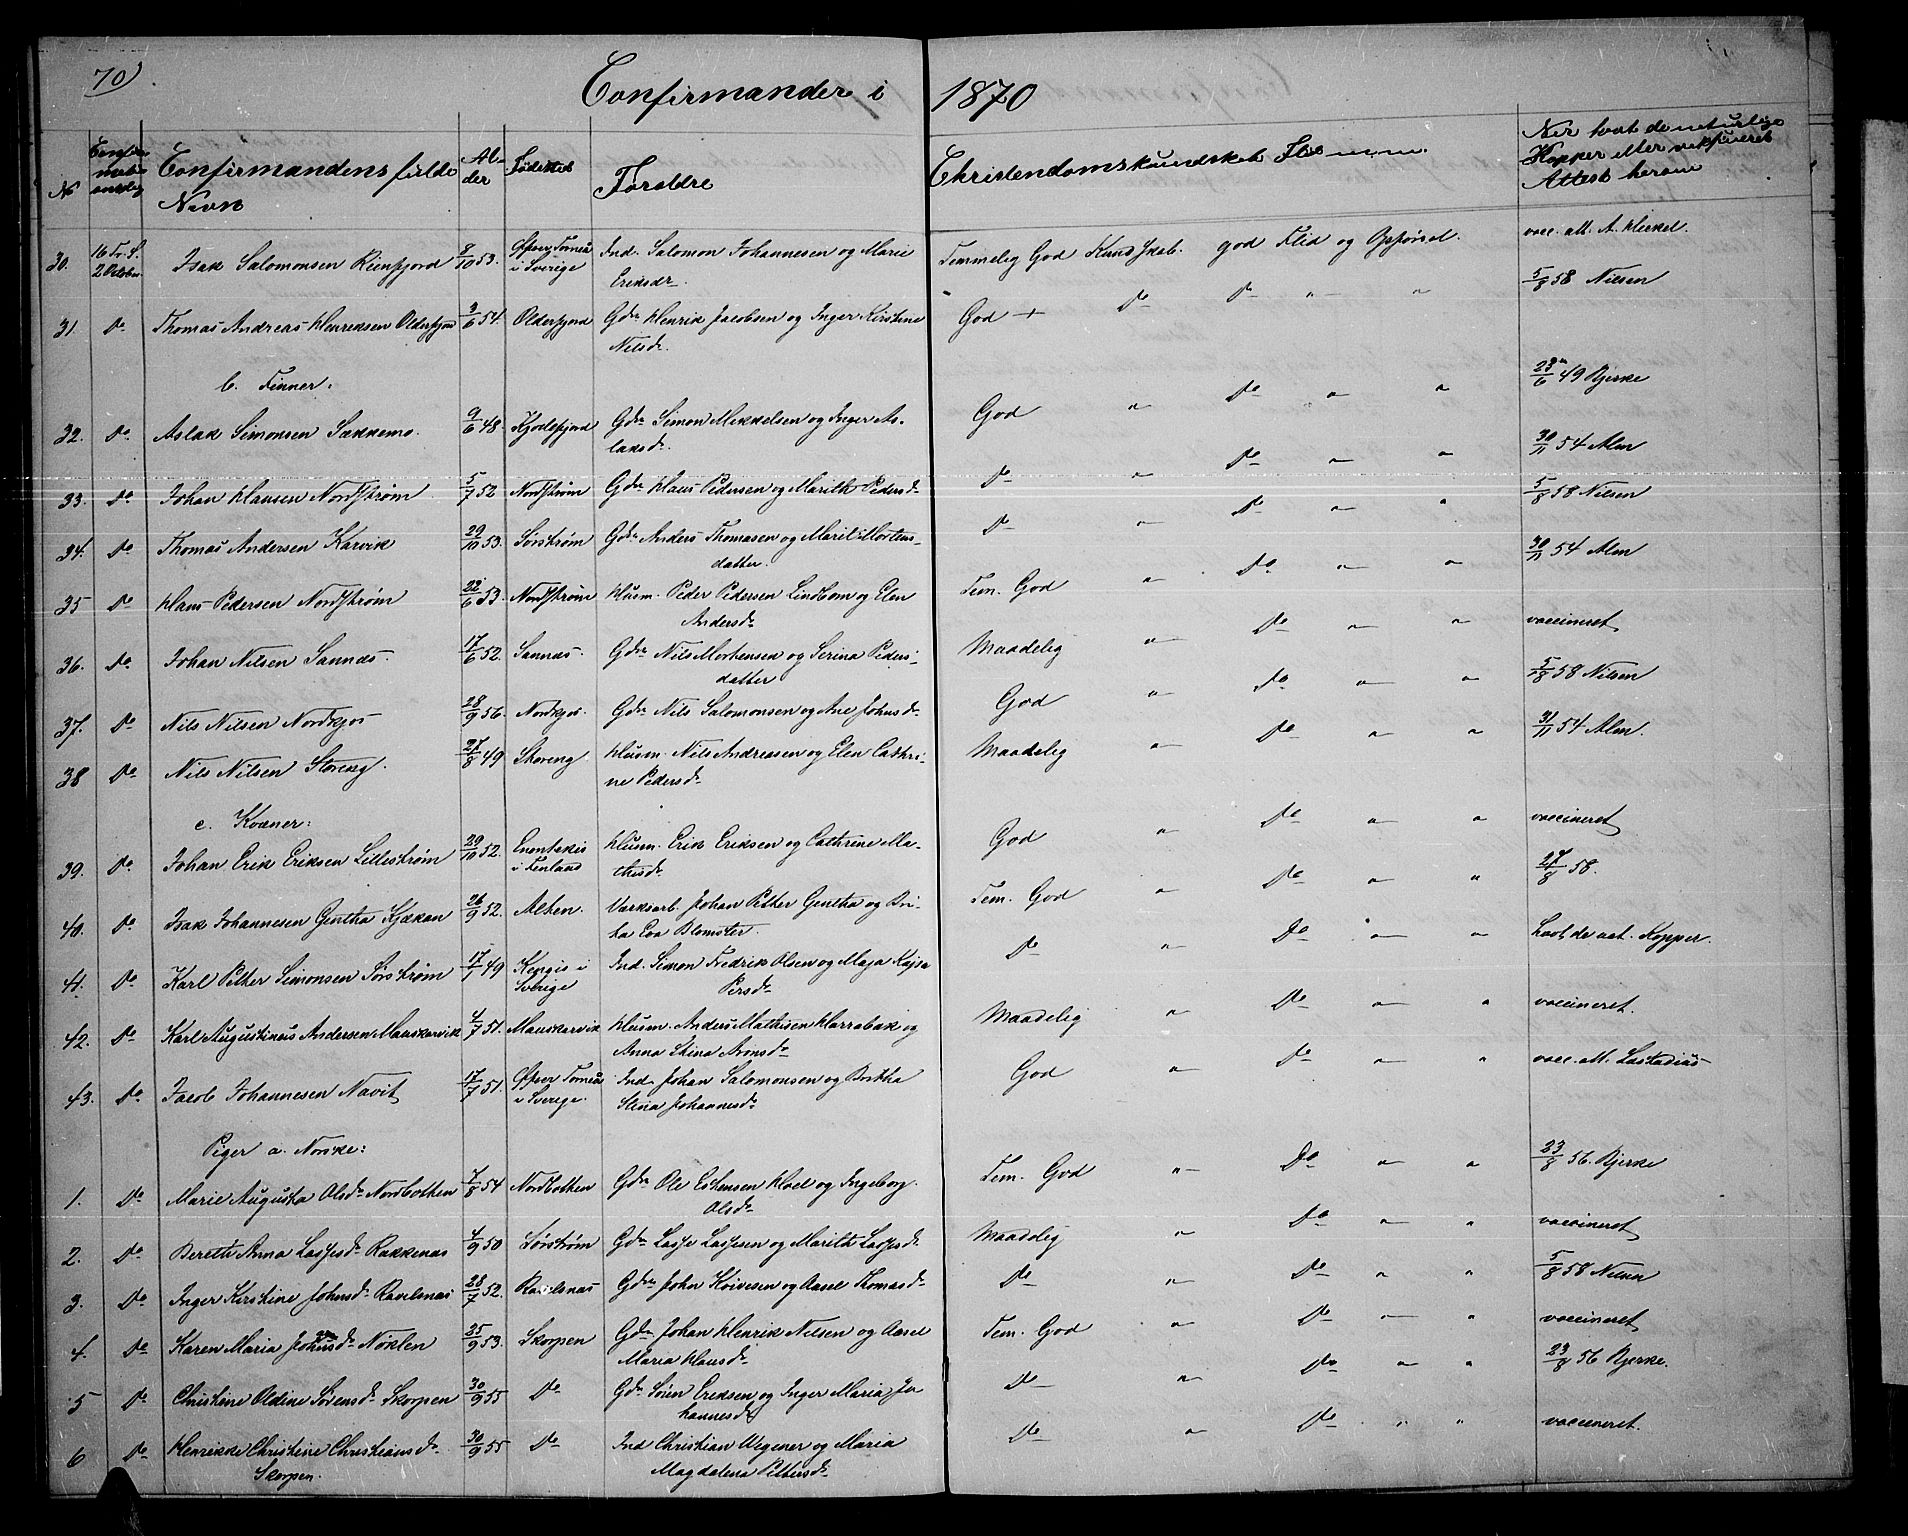 70)
Confirmander i 1870
No
Confirmandens fulde Navn
Alder
Fødested
Forældre
Christendomskundskab
Attest herom
30. 16 Tr. S. 2 October Isak Salomonsen Rienfjord 8/10 53. Øfver Torneå i Sverige Ind. Salomon Johannesen og Marie Eriksdr. Temmelig God Kundskab. god Flid og Opførsel. vacc. att. A. Heikel.
31. Do Thomas Andreas Henriksen Olderfjord 3/6 54. Olderfjord Gdm Henrik Jacobsen og Inger Kirstine Nilsdr. God + Do Do " " 5/8 58 Nilsen
b. Finner.
32. Do Aslak Simonsen Sakkemo. 9/6 48. Kjodefjord Gdm Simon Mikkelsen og Inger Aslaksdr. God " Do " " 23/6 49 Bjerke
33. Do Johan Hansen Nordstrøm 5/7 52 Nordstrøm Gdm Hans Pedersen og Marith Pedersdr Do " Do " " 30/11 54 Alm
34. Do Thomas Andersen Karvik 29/10 53. Sørstrøm Gdm Anders Thomasen og Marit Mortensdatter. Do " Do " " 5/8 58 Nilsen
35 Do Hans Pedersen Nordstrøm 22/6 53. Nordstrøm Husm. Peder Pedersen Lindbom og Elen Andersdr Tem. God " Do " " 30/11 54 Alm
36. Do Johan Nilsen Sannæs. 17/6 52. Sannæs. Gdm Nils Mortensen og Serina Pedersdatter Maadelig " Do " " vaccineret
37. Do Nils Nilsen Nordkjos 28/9 56. Nordkjos. Gdm Nils Salomonsen og Ane Johnsdr God " Do " " 5/8 58 Nilsen
38 Do Nils Nilsen Storeng. 27/8 49 Storeng. Husm. Nils Andreasen og Elen Cathrine Pedersdr Maadelig " Do " " 31/11 54 Alm.
c. Kvæner:
39. Do Johan Erik Eriksen Lillestrøm 29/10 52. Enontekis i Finland Husm. Erik Eriksen og Cathrine Mathisdr God " Do " " vaccineret
40. Do Isak Johannesen Gentha Kjækan 26/9 52. Alten. Værksarb. Johan Petter Gentha og Brita Eva Blomster. Tem. God " Do " " 27/8 58.
41. Do Karl Petter Simonsen Sørstrøm 17/1 49 Kengis i Sverige Ind. Simon Fredrik Olsen og Maja Kajsa Persdr Do " Do " " havt de nat. Kopper.
42. Do Karl Augustinus Andersen Mauskarvik 4/7 51. Mauskarvik Husm. Anders Mathisen Harrabak og Anna Stina Aronsdr Maadelig " Do " " vaccineret.
43. Do Jacob Johannesen Navit 17/7 51. Øfver Torneå i Sverige. Ind. Johan Salomonsen og Britha Stina Johannesdr God " Do " " vacc. att. Læstadius
Piger a. Norske:
1. Do Marie Augusta Olsdr Nordbotten 7/8 54 Nordbotten Gdm Ole Estensen Hoel og Ingeborg Olsdr Tem. God " Do " " 23/8 56. Bjerke
2. Do Bereth Anna Lassesdr Rakkenæs 4/9 50 Sørstrøm Gdm Lasse Lassesen og Marith Lassesdr Maadelig " Do " " vaccineret
3. Do Inger Kirstine Johnsdr Ravelsnæs 28/7 52. Ravelsnæs Gdm John Koivesen og Aasel Thomasdr Do " Do " " 5/8 58 Nilsen
4. Do Karen Maria Johnsdr Nøklen 25/9 53. Skorpen Gdm Johan Henrik Nilsen og Aasel Maria Hansdr Tem. God " Do " " vaccineret
5 Do Christine Oldine Sørensdr Skorpen 30/9 55 Do Gdm Søren Eriksen og Inger Maria Johannesdr Do " Do " " 23/8 56 Bjerke.
6 Do Henrikke Christine Christiansdr Skorpen. 30/9 55 Do Ind Christian Wegener og Maria Magdalena Pettersdr Do " Do " " vaccineret.